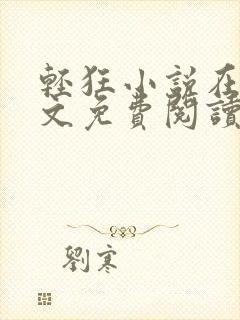 輕狂小說在
文免費閱讀
劉寒